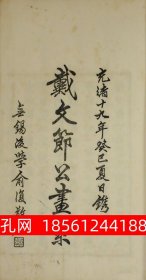 光緒十九年癸巳夏日鐫
戴文節公畫絮
無錫後學俞復題
孔网 18561244188